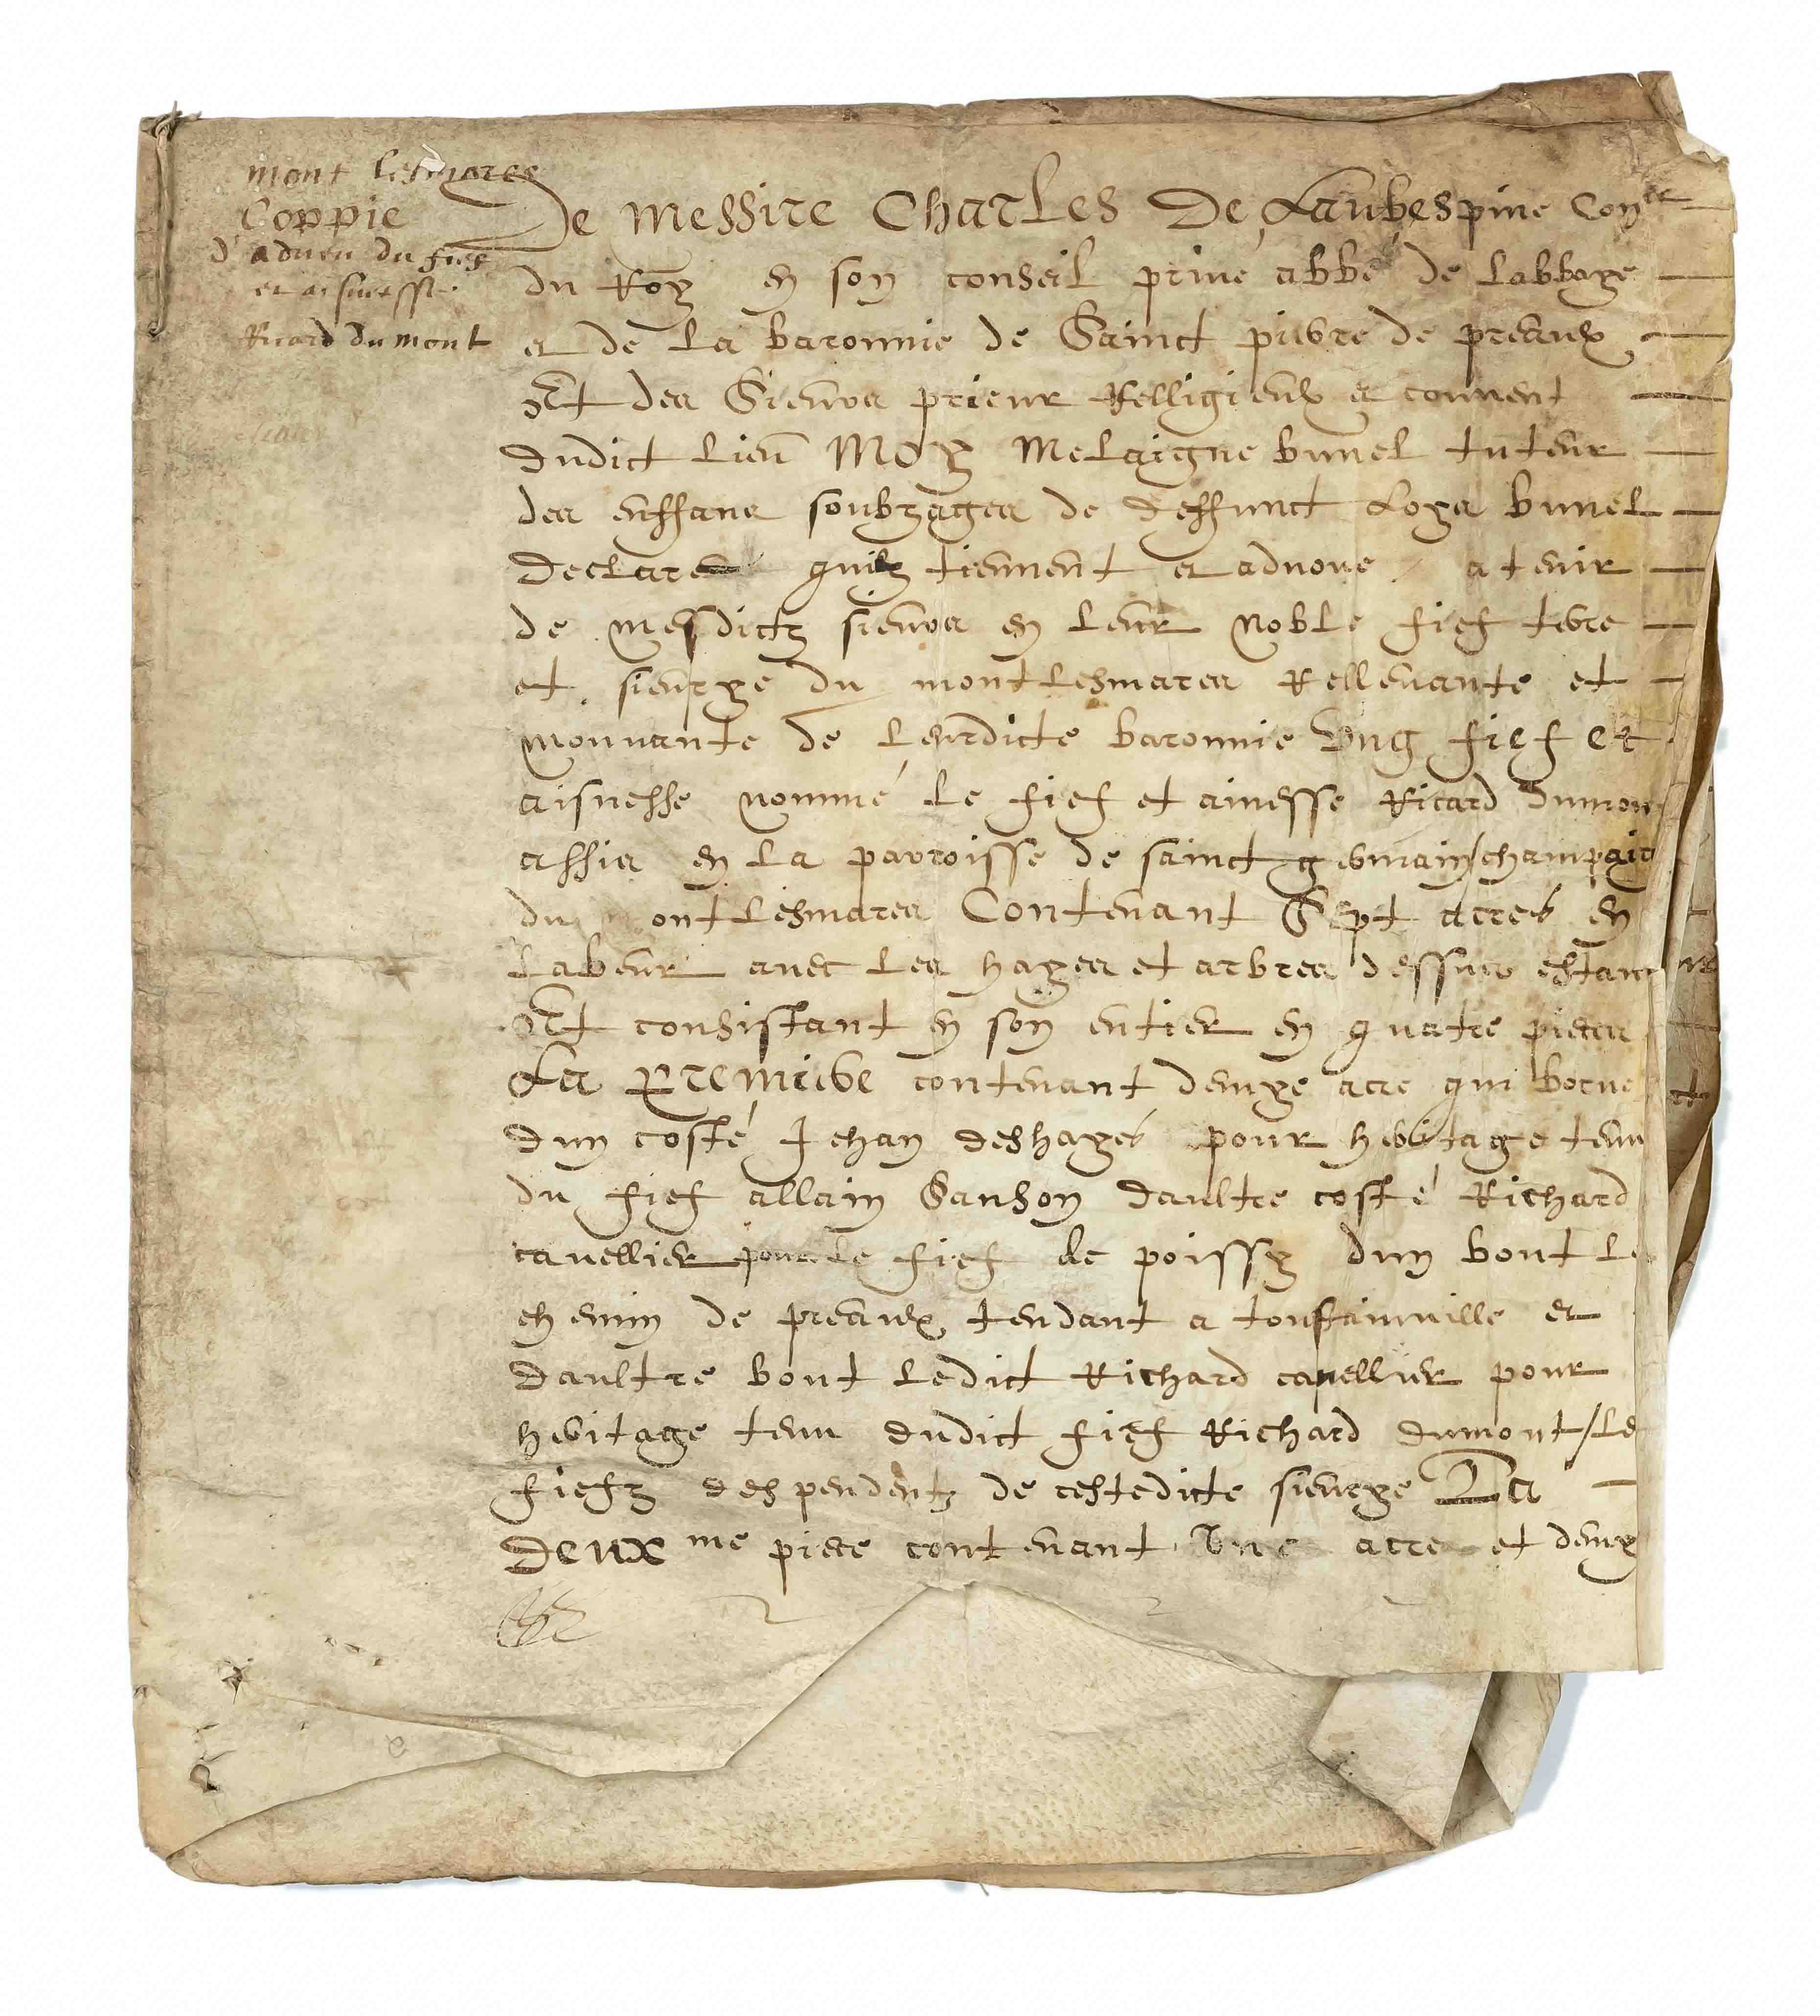 mont lesmares
Coppie
d'adveu du fief
et aisnesse
Ricard du mont
De Messire Charles De Laubespine Con.er
du Roy en son conseil privé abbé de Labbaye
et de La baronnie de Sainct pierre de preaux
Et des Sieurs prieur Relligieux et couvent
dudict Lieu Moy Melaigne bunel tuteur
des enffans soubzages de deffunct Loys bunel
declare quilz tiennent et advoue a tenir
de mesdictz sieurs en Leur Noble fief terre
et sieurye du montLesmares Rellevante et
mouvante de Leurdicte baronnie Ung fief et
aisnesse nommé Le fief et ainesse Ricard dumon
assis en La parroisse de sainct germain/champaig
du ontLesmares Contenant Sept acres en
Labeur avec Les hayes et arbres dessus estant
Et consistant en son entier en quatre pieces
La Premiere contenant demye acre qui borne
dun costé Jehan deshayes pour heritage tenu
du fief allain Sanson daultre costé Richard
cavellier pour le fief de poissy dun bout Le
chemin de preaux tendant a toustainville et
daultre bout Ledict Richard cavellier pour
heritage tenu dudict fief Richard dumont/Le
fiefz despendentz de cestedicte sieurye La
Deuxme piece contenant Une acre et demy